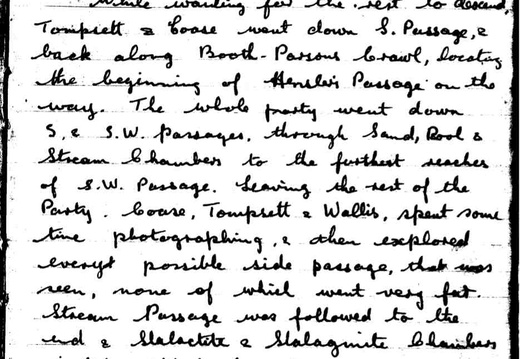 While waiting for the rest to descend,
Tompsett & Coase went down S. Passage, &
back along Booth-Parsons Crawl, locating
the beginning of Hensler's Passage on the
way. The whole party went down
S, & S.W. passages, through Sand, Pool &
Stream Chambers to the furthest reaches
of S.W. Passage. Leaving the rest of the
Party. Coase, Tompsett & Wallis, spent some
time photographing, & then explored
every possible side passage, that was
seen, none of which went very far.
Stream Passage was followed to the
end & Stalactite & Stalagmite Chambers